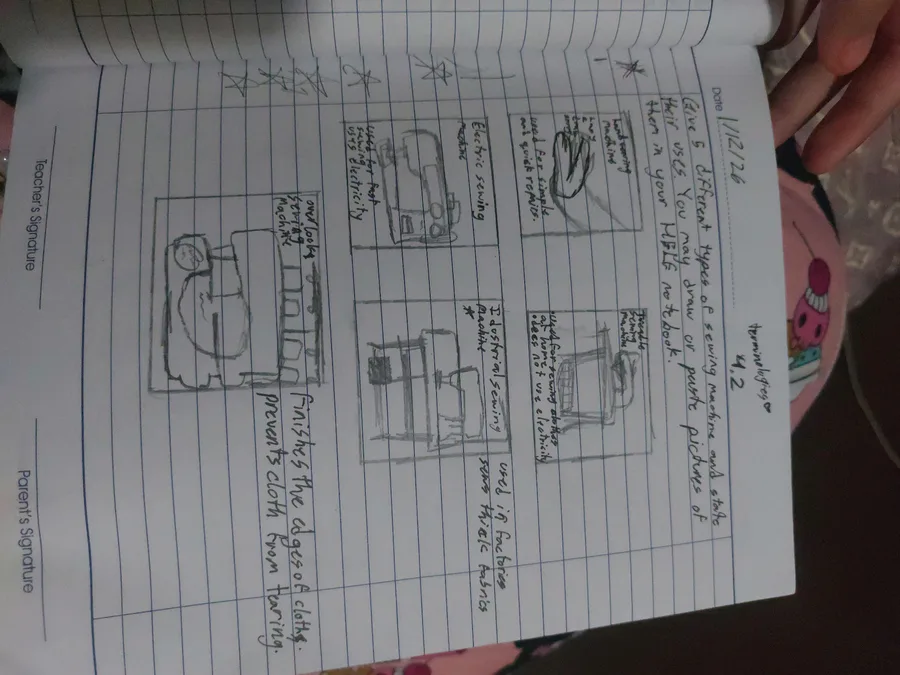 Date 1/12/26
terminologies
4.2
Give 5 different types of sewing machine and state
their uses You may draw or paste pictures of
them in your notebook.
1
Hand sewing
machine
used for simple
and quick repairs.
sewing
machine
used for sewing clothes
at home & does not use electricity
Electric sewing
machine
used for fast
sewing
uses electricity
Idustrial sewing
machine
used in factories
sews thick fabrics
overlocks
sewing
machine
finishes the edges of cloths.
prevents cloth from tearing.
Teacher's Signature
Parent's Signature